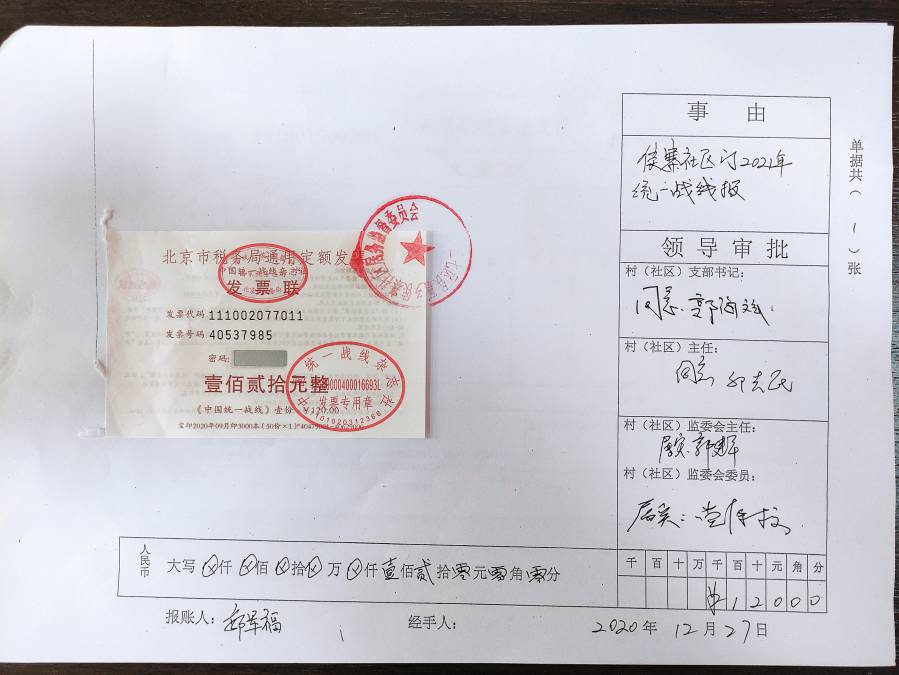 事 由
侯寨社区订2021年
统一战线报
单据共(1)张
领导审批
村（社区）支部书记：
同意
村（社区）主任：
同意
村（社区）监委会主任：
属实
村（社区）监委会委员：
属实：
北京市税务局通用定额发票
发票联
发票代码 111002077011
发票号码 40537985
密码：
壹佰贰拾元整
《中国统一战线》壹份 ￥120.00
中国统一战线杂志社
发票专用章
人民币
大写 ⊗仟⊗佰⊗拾⊗万⊗仟壹佰贰拾零元零角零分
千 百 十 万 千 百 十 元 角 分
¥12000
报账人：
经手人：
2020年12月27日